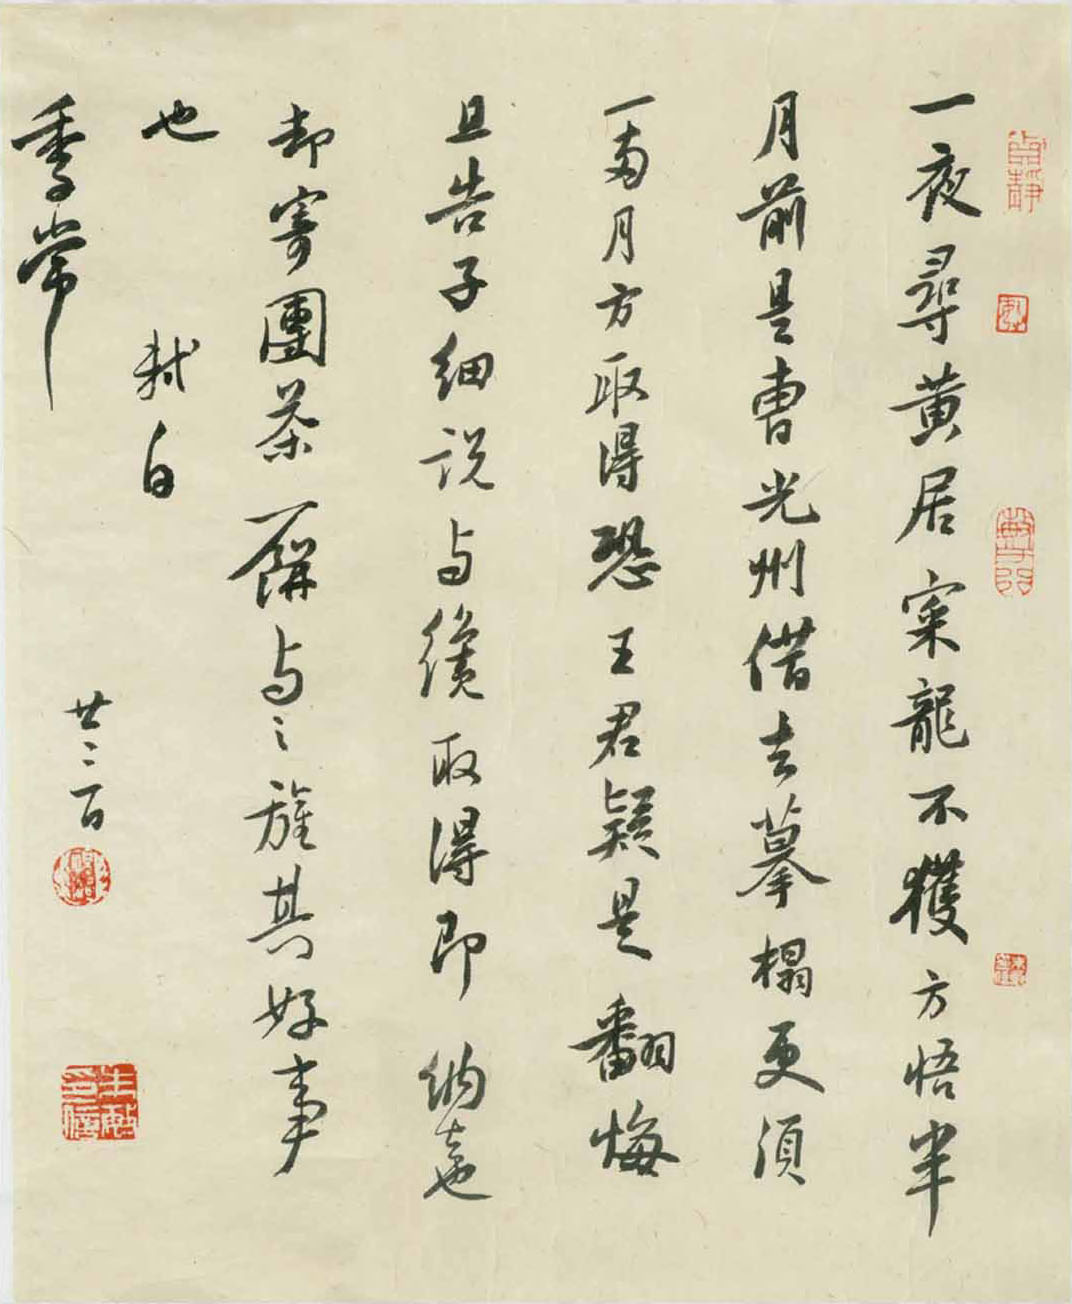 一夜尋黄居寀龍不獲方悟半
月前是曹光州借去摹榻更須
一兩月方取得恐王君疑是翻悔
且告子細説与纔取得即納去也
却寄團茶一餅与之旌其好事
也 軾白
季常
廿三日